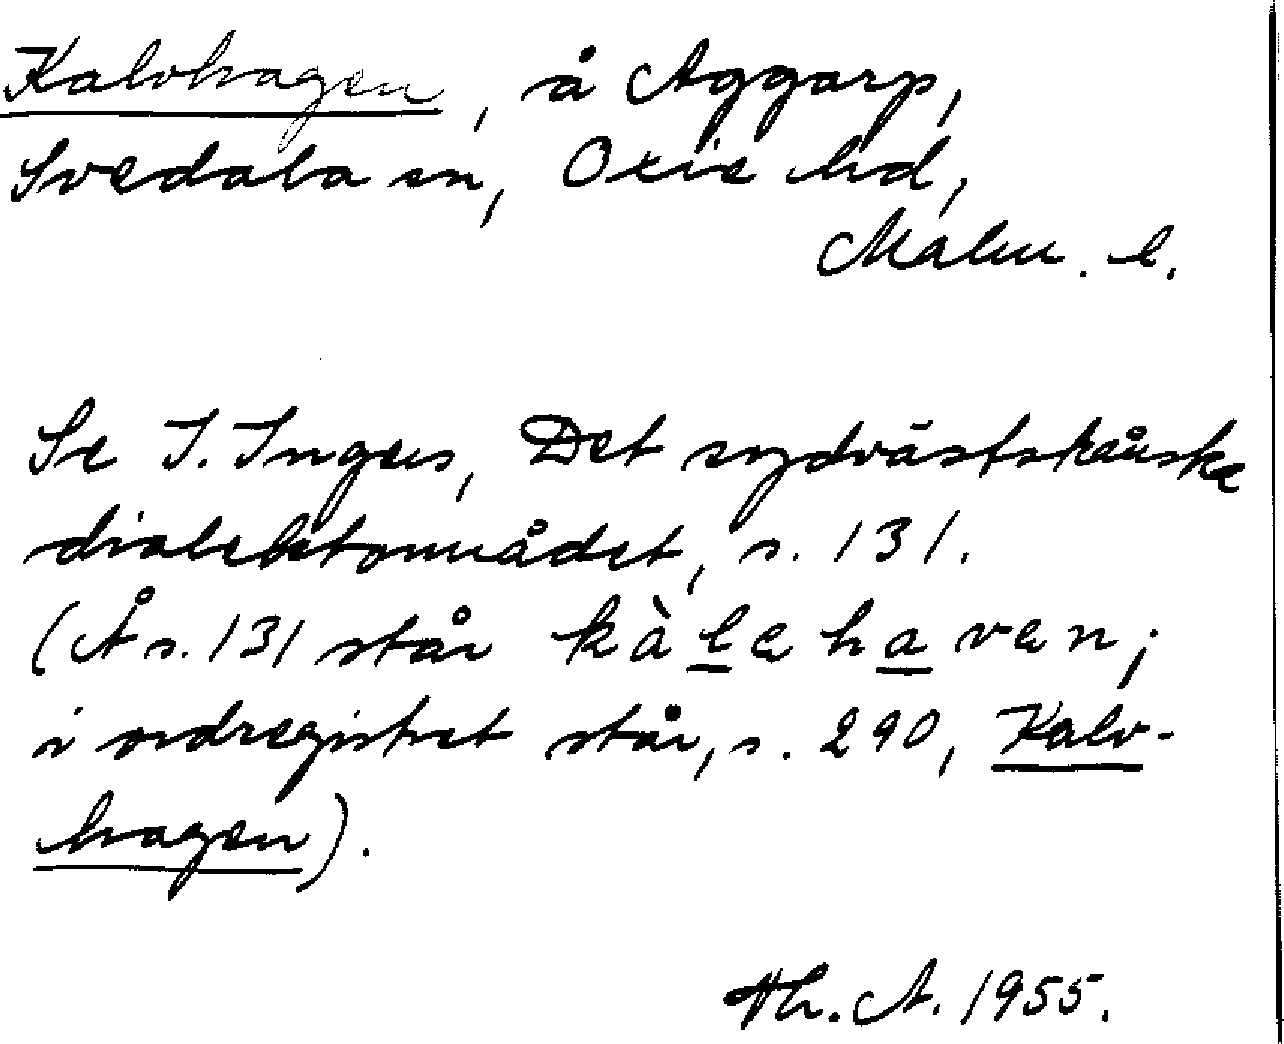 Kalvhagen, å Aggarp,
Svedala sn, Oxie hd,
Malm. l.
Se I. Ingers, Det sydvästskånska
dialektområdet, s. 131.
(Å s. 131 står kàlehaven;
i ordregistret står, s. 290, Kalv-
hagen).
Th. A. 1955.